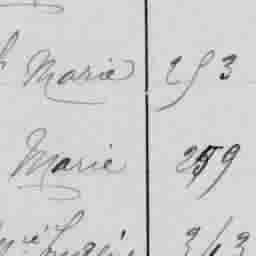 Marie 253
Marie 259
343